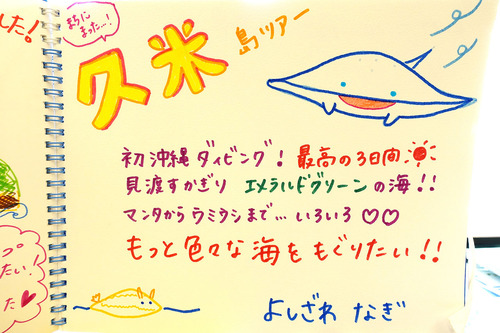 した!
まちに
まった…!
久米
島ツアー
初沖縄ダイビング! 最高の3日間
見渡すかぎり エメラルドグリーンの海!!
マンタからウミウシまで…いろいろ♡♡
もっと色々な海をもぐりたい!!
よしざわ なぎ
たい!
た♥